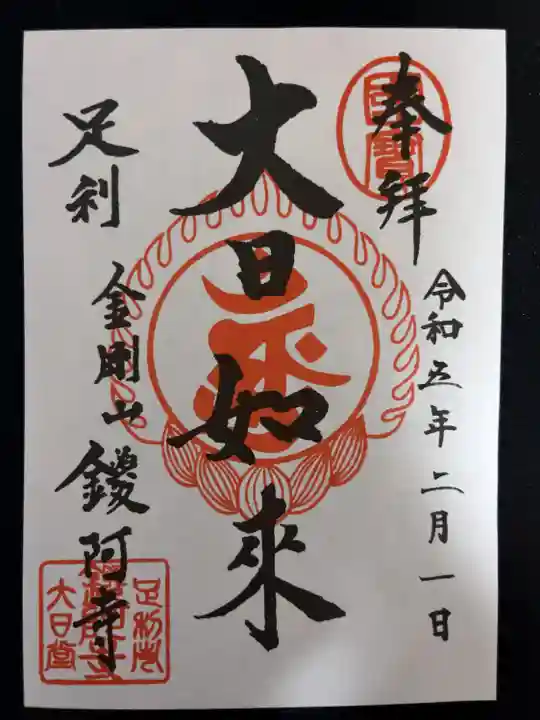 奉拝
國寶
令和五年二月一日
大日如来
足利
金剛山
鑁阿寺
足利山
鑁阿寺
大日堂